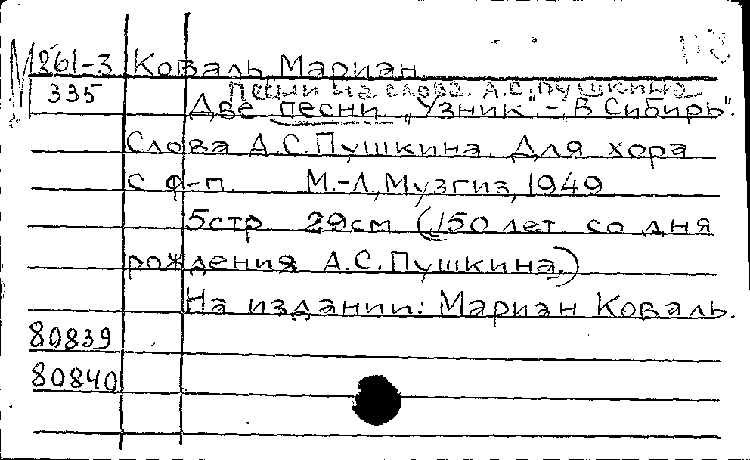 М 261-3 Коваль Мариан.
Песни на слова А.С.Пушкина
335 Две песни „Узник".-„В Сибирь".
Слова А.С.Пушкина. Для хора
с ф-п. М.-Л., Музгиз, 1949
5стр 29см (150 лет со дня
рождения А.С.Пушкина.)
На издании: Мариан Коваль.
80839
80840